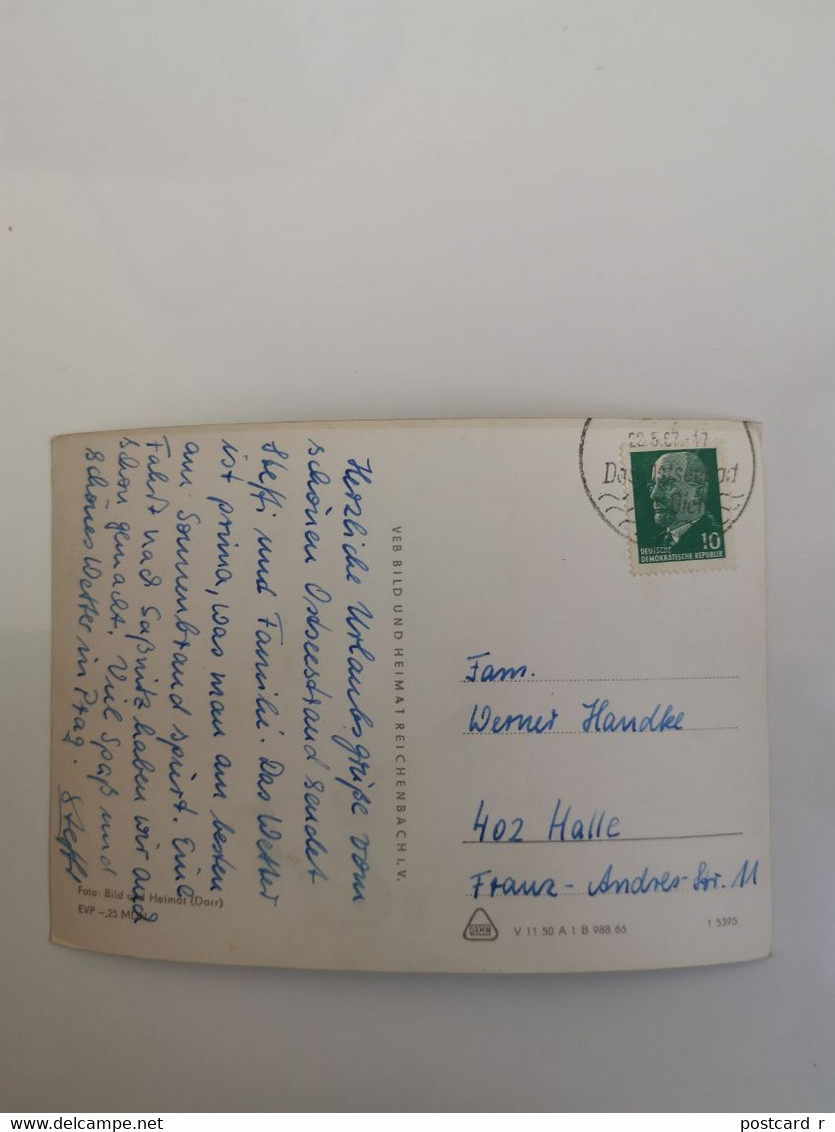 Herzliche Urlaubsgrüße vom
schönen Ostseestrand sendet
Steffi und Familie. Das Wetter
ist prima, was man am besten
am Sonnenbrand spürt. Eine
Fahrt nach Saßnitz haben wir auch
schon gemacht. Viel Spaß und
schönes Wetter in Prag. Steffi
Foto: Bild und Heimat (Darr)
EVP –,25 MDN
VEB BILD UND HEIMAT REICHENBACH I. V.
5.67.-17
Das Ostseebad
10
DEUTSCHE
DEMOKRATISCHE REPUBLIK
Fam.
Werner Handke
402 Halle
Franz-Andres-Str. 11
DAHW V 11 50 A 1 B 988 66 1 5395
www.delcampe.net
postcard_r